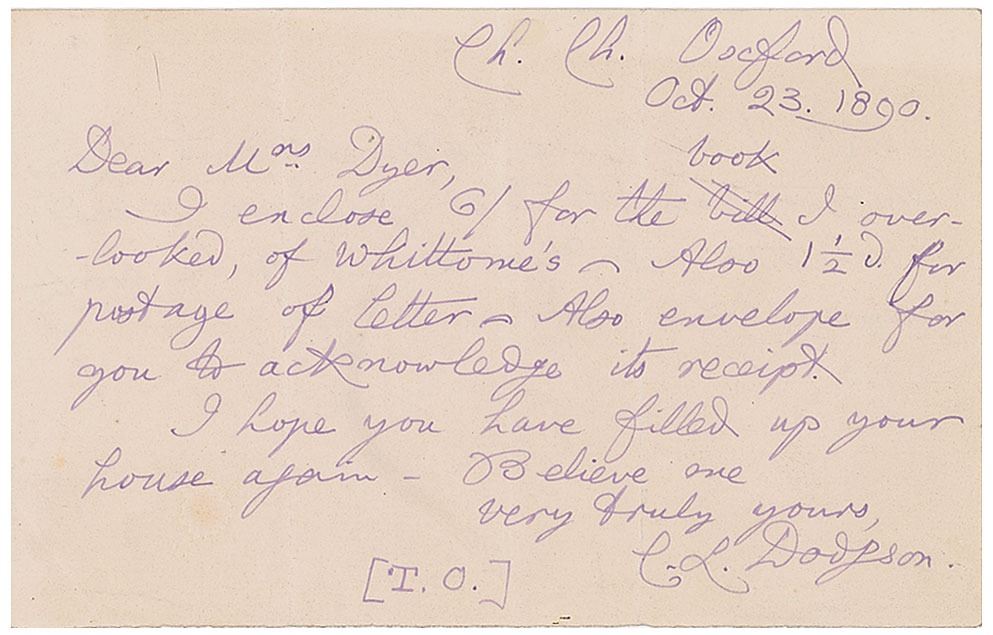 Ch. Ch. Oxford
Oct. 23. 1890.
Dear Mrs Dyer,
book
I enclose 6/ for the bill I over-
-looked, of Whittome's – Also 1½d. for
postage of letter – Also envelope for
you to acknowledge its receipt.
I hope you have filled up your
house again – Believe me
very truly yours,
C. L. Dodgson.
[T. O.]